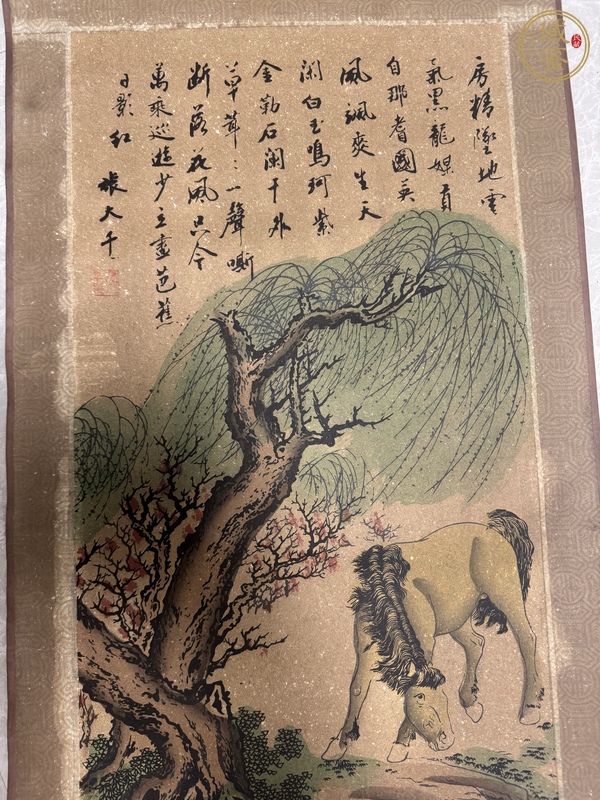 房精墜地雲
氣黑龍媒負
自那耆國英
風颯爽生天
閑白玉鳴珂紫
金勒石闌干外
草茸〻一聲嘶
断落花風只今
萬乘巡遊少立盡芭蕉
日影紅
張大千